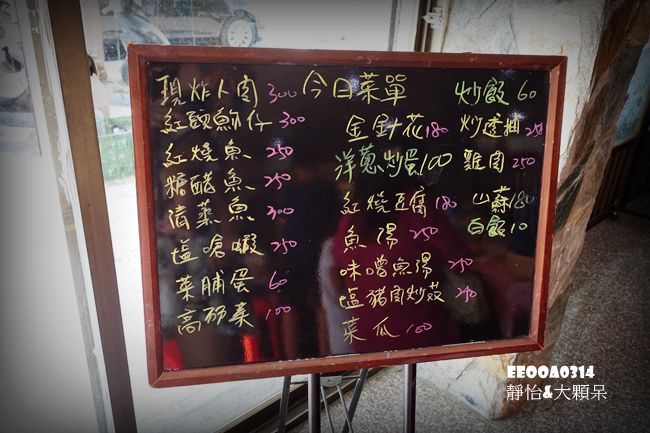 今日菜單
現炸卜肉 300
紅頭魩仔 300
紅燒魚 250
糖醋魚 250
清蒸魚 300
塩嗆蝦 250
菜脯蛋 60
高麗菜 100
金針花 180
洋蔥炒蛋 100
紅燒豆腐 180
魚湯 250
味噌魚湯 250
塩豬肉炒菇
菜瓜 100
炒飯 60
炒透抽 250
雞肉 250
山蘇 180
白飯 10
EEOOA0314
靜怡&大顆呆